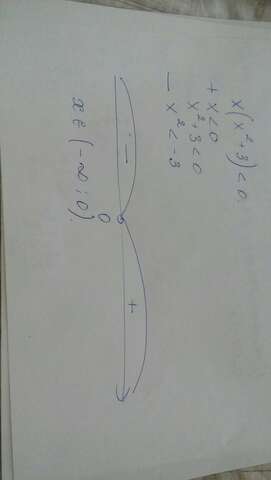 x(x²+3)<0.
+ x<0
x²+3<0
— x²<-3
- +
0
x ∈ (-∞; 0).